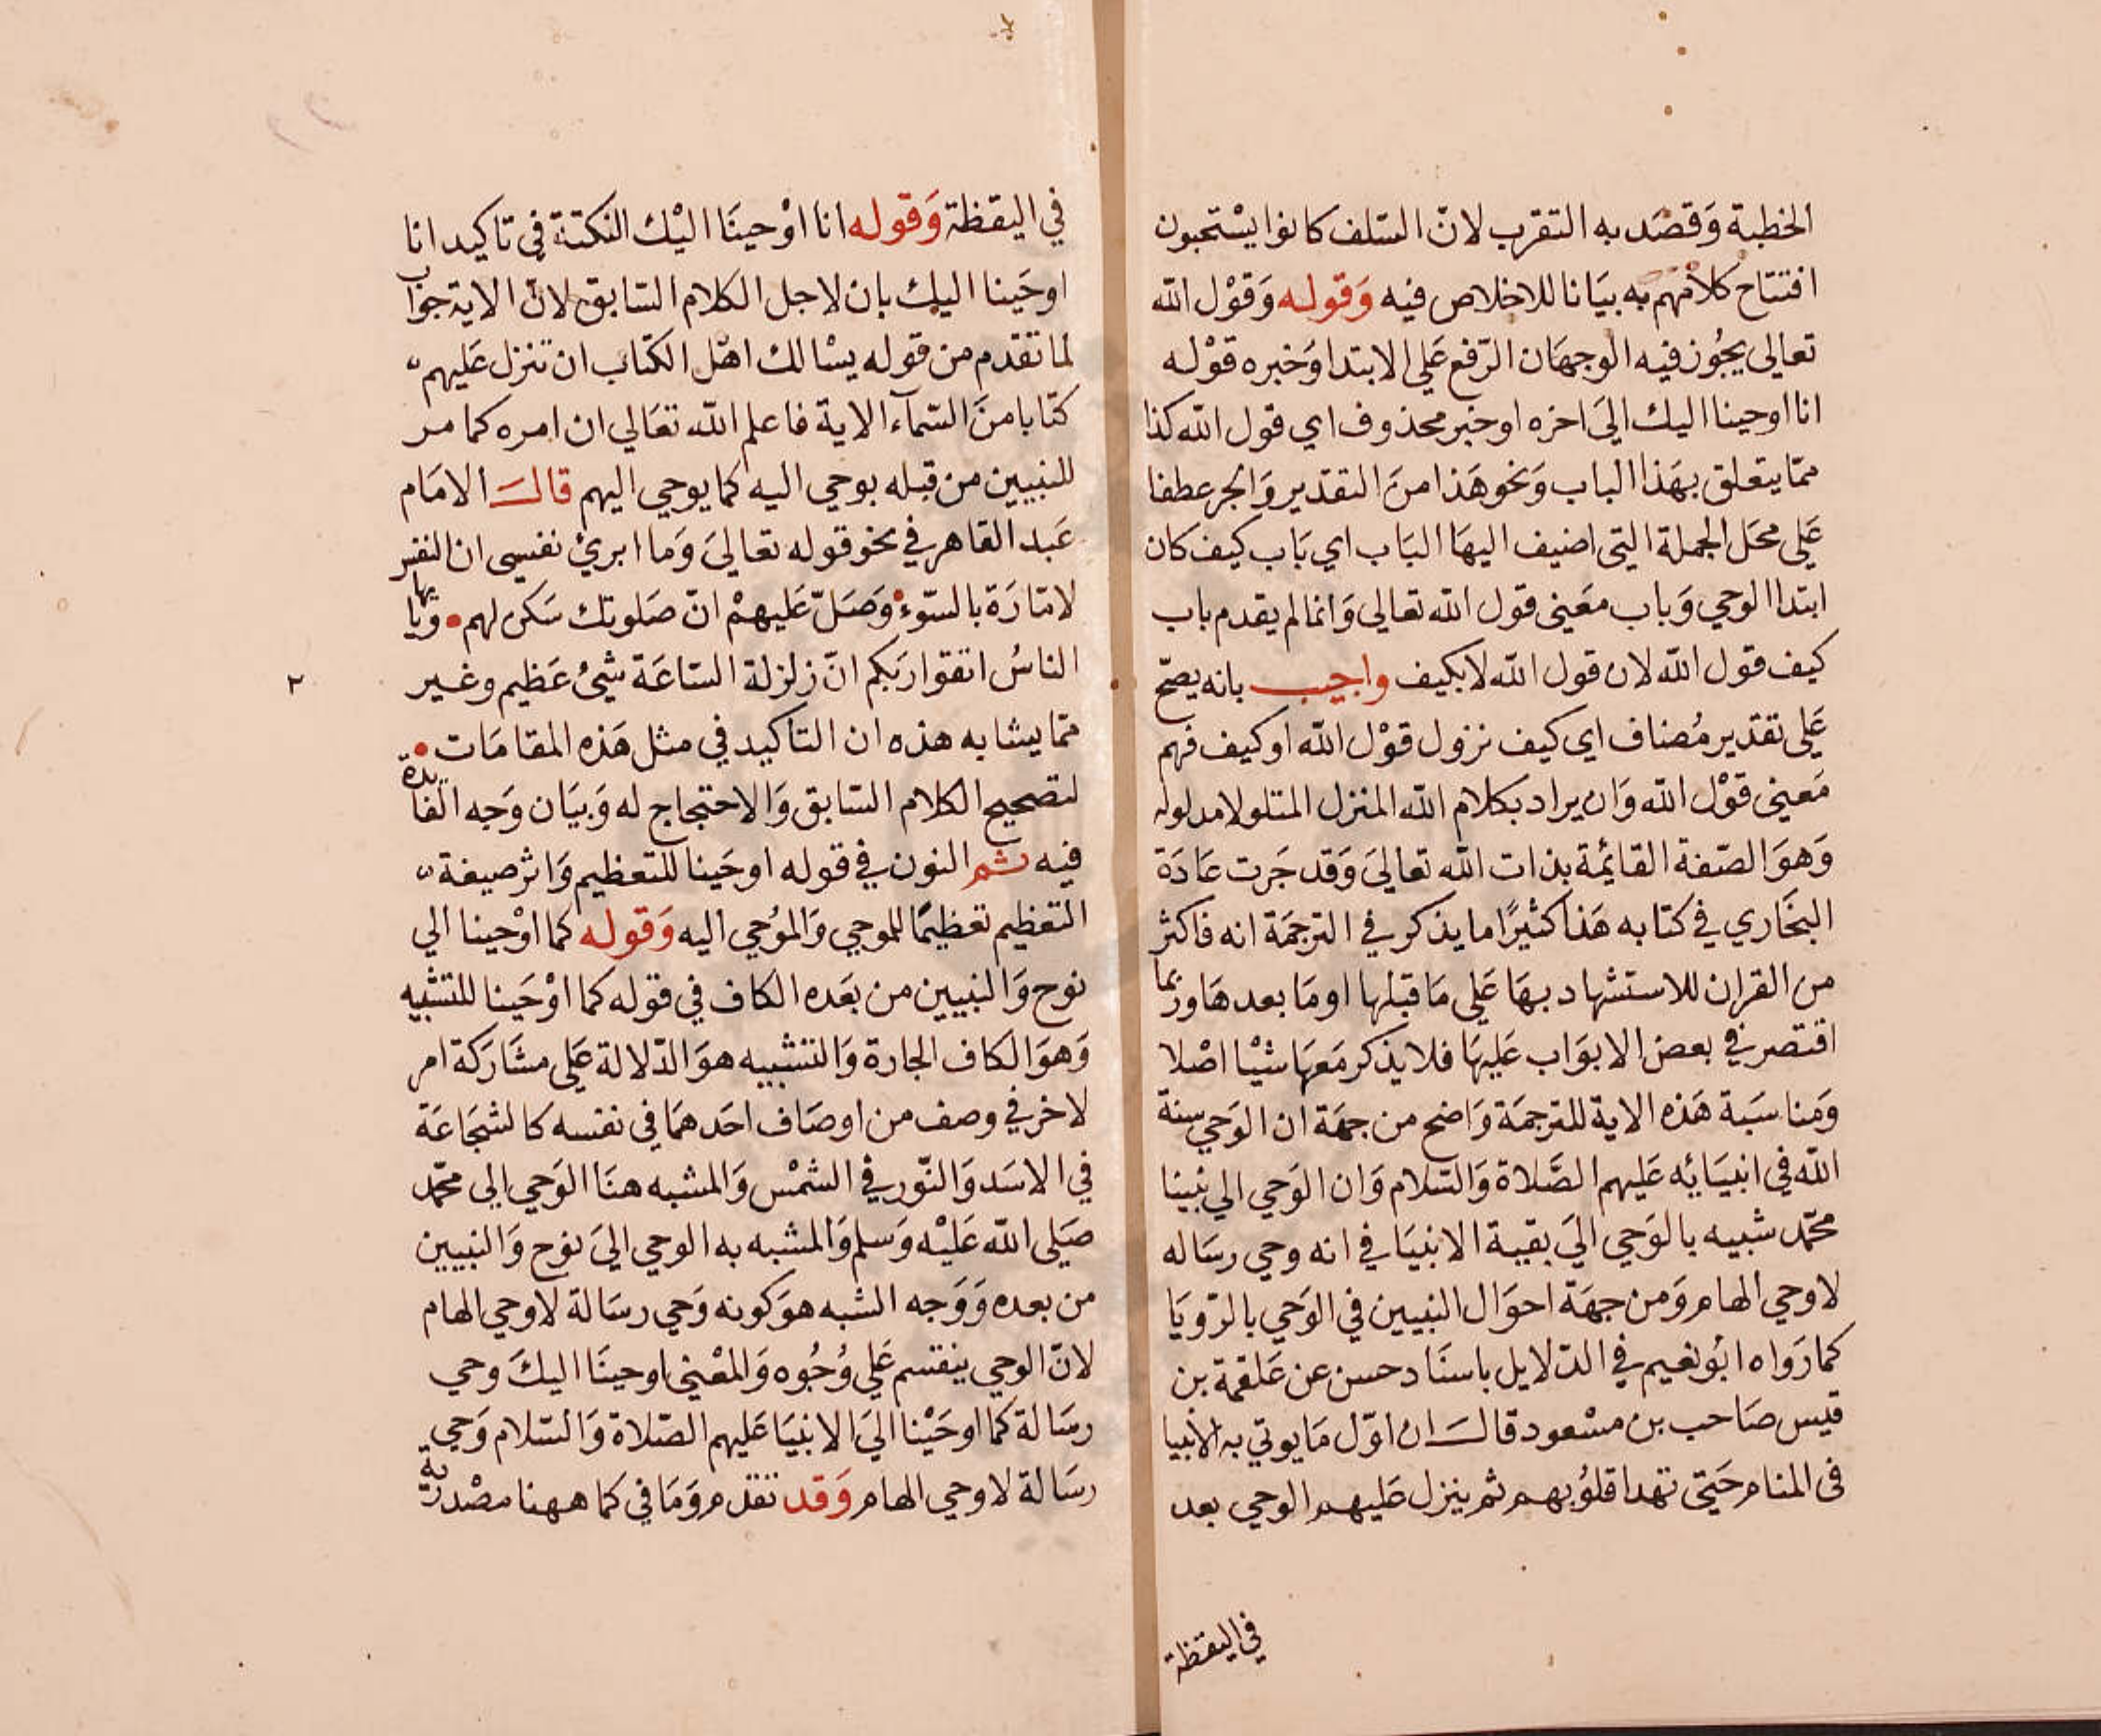 الخطبة وَقصَد به التقرب لانّ السّلف كانوا يسْتحبون
افتتاح كلامهم به بيَانا للاخلاص فيه وَقوله وَقوْل الله
تعالى يجُوز فيه الوجهَان الرّفع عَلى الابتدا وَخبره قوْله
انا اوحينا اليك الىَ اخره او خبر محذوف اي قول الله كذا
ممّا يتعلق بهَذا الباب وَنحو هَذا منَ التقدير وَالجر عطفا
عَلى محَل الجملة التى اضيف اليهَا البَاب اي بَاب كيف كان
ابتدا الوحي وَباب معَنى قول الله تعالى وَانما لم يقدم باب
كيف قول الله لان قول الله لا يكيف واجيب بانه يصحّ
عَلى تقدير مُضاف اى كيف نزول قوْل الله او كيف فهم
مَعنى قوْل الله وَان يراد بكلام الله المنزل المتلو لا مدلوله
وَهوَ الصّفة القايمة بذات الله تعالىَ وَقد جَرت عَادَة
البخَاري في كتابه هَذا كثيرًا ما يذكر في الترجمَة انه فاكثر
من القران للاستشهاد بهَا عَلى مَا قبلها او مَا بعدهَا وربما
اقتصر في بعض الابوَاب عَليهَا فلا يذكر مَعهَا شيْا اصْلا
وَمناسَبة هَذه الاية للترجمَة وَاضح من جهَة ان الوَحي سنة
الله في انبيَائه عَليهم الصَّلاة وَالسّلام وَان الوَحي الي نبينا
محمّد شبيه بالوَحي اليَ بقية الانبيَا في انه وحي رسَاله
لا وحي الهام وَمن جهَة احوَال النبيين في الوَحي بالرّويَا
كما رَواه ابُو نعيم في الدّلايل باسنَاد حسن عن عَلقمة بن
قيس صَاحب بن مسْعود قالَ ان اوّل مَا يوتي به الانبيا
فى المنام حَتى تهدا قلوُبهم ثم ينزل عَليهم الوحي بعد
في اليقظة
في اليقظة وَقوله انا اوْحينَا اليْك النكتة في تاكيد انا
اوحَينا اليك بان لاجل الكلام السّابق لانّ الاية جوَاب
لما تقدم من قوله يسْالك اهْل الكتاب ان تنزل عَليهم
كتابا منَ السّمآء الاية فاعلم الله تعَالي ان امره كما مر
للنبيين من قبله يوحي اليه كما يوحي اليهم قالَ الامَام
عَبد القاهر في نحو قوله تعَاليَ وَما ابريُ نفسى ان النفس
لامّارَة بالسّوء وَصَلّ عَليهمْ انّ صَلوتك سَكن لهم ويا ايها
الناسُ اتقوا ربَكم انّ زلزلة السّاعَة شيُ عَظيم وغير
ممّا يشابه هذه ان التاكيد في مثل هَذه المقامَات
لتصحيح الكلام السّابق وَالاحتجاج له وَبيَان وَجه الفايدة
فيه ثم النون في قوله اوحَينا للتعظيم وَاثر صيغة
التعْظيم تعظيمًا للموحي وَالموُحي اليه وَقوله كما اوْحينا الي
نوح وَالنبيين من بعَده الكاف في قوله كما اوْحَينا للتشبيه
وَهوَ الكاف الجارة وَالتشبيه هوَ الدّلالة عَلي مشَارَكة امر
لاخر في وصف من اوصَاف احَدهمَا في نفسه كالشجَاعَة
في الاسَد وَالنّور في الشمْس وَالمشبه هنَا الوَحي الي محمّد
صَلي الله عَليْه وَسلم وَالمشبه به الوحي اليَ نوح وَالنبيين
من بعده وَوَجه الشبه هوَ كونه وَحي رسَالة لا وحي الهام
لانّ الوحي ينقسم عَلي وُجُوه وَالمعْني اوحينَا اليكَ وحي
رسَالة كما اوحَيْنا اليَ الانبيَا عَليهم الصّلاة وَالسّلام وَحي
رسَالة لا وحي الهام وَقد تقدم وَمَا في كما ههنا مصْدرية
٢